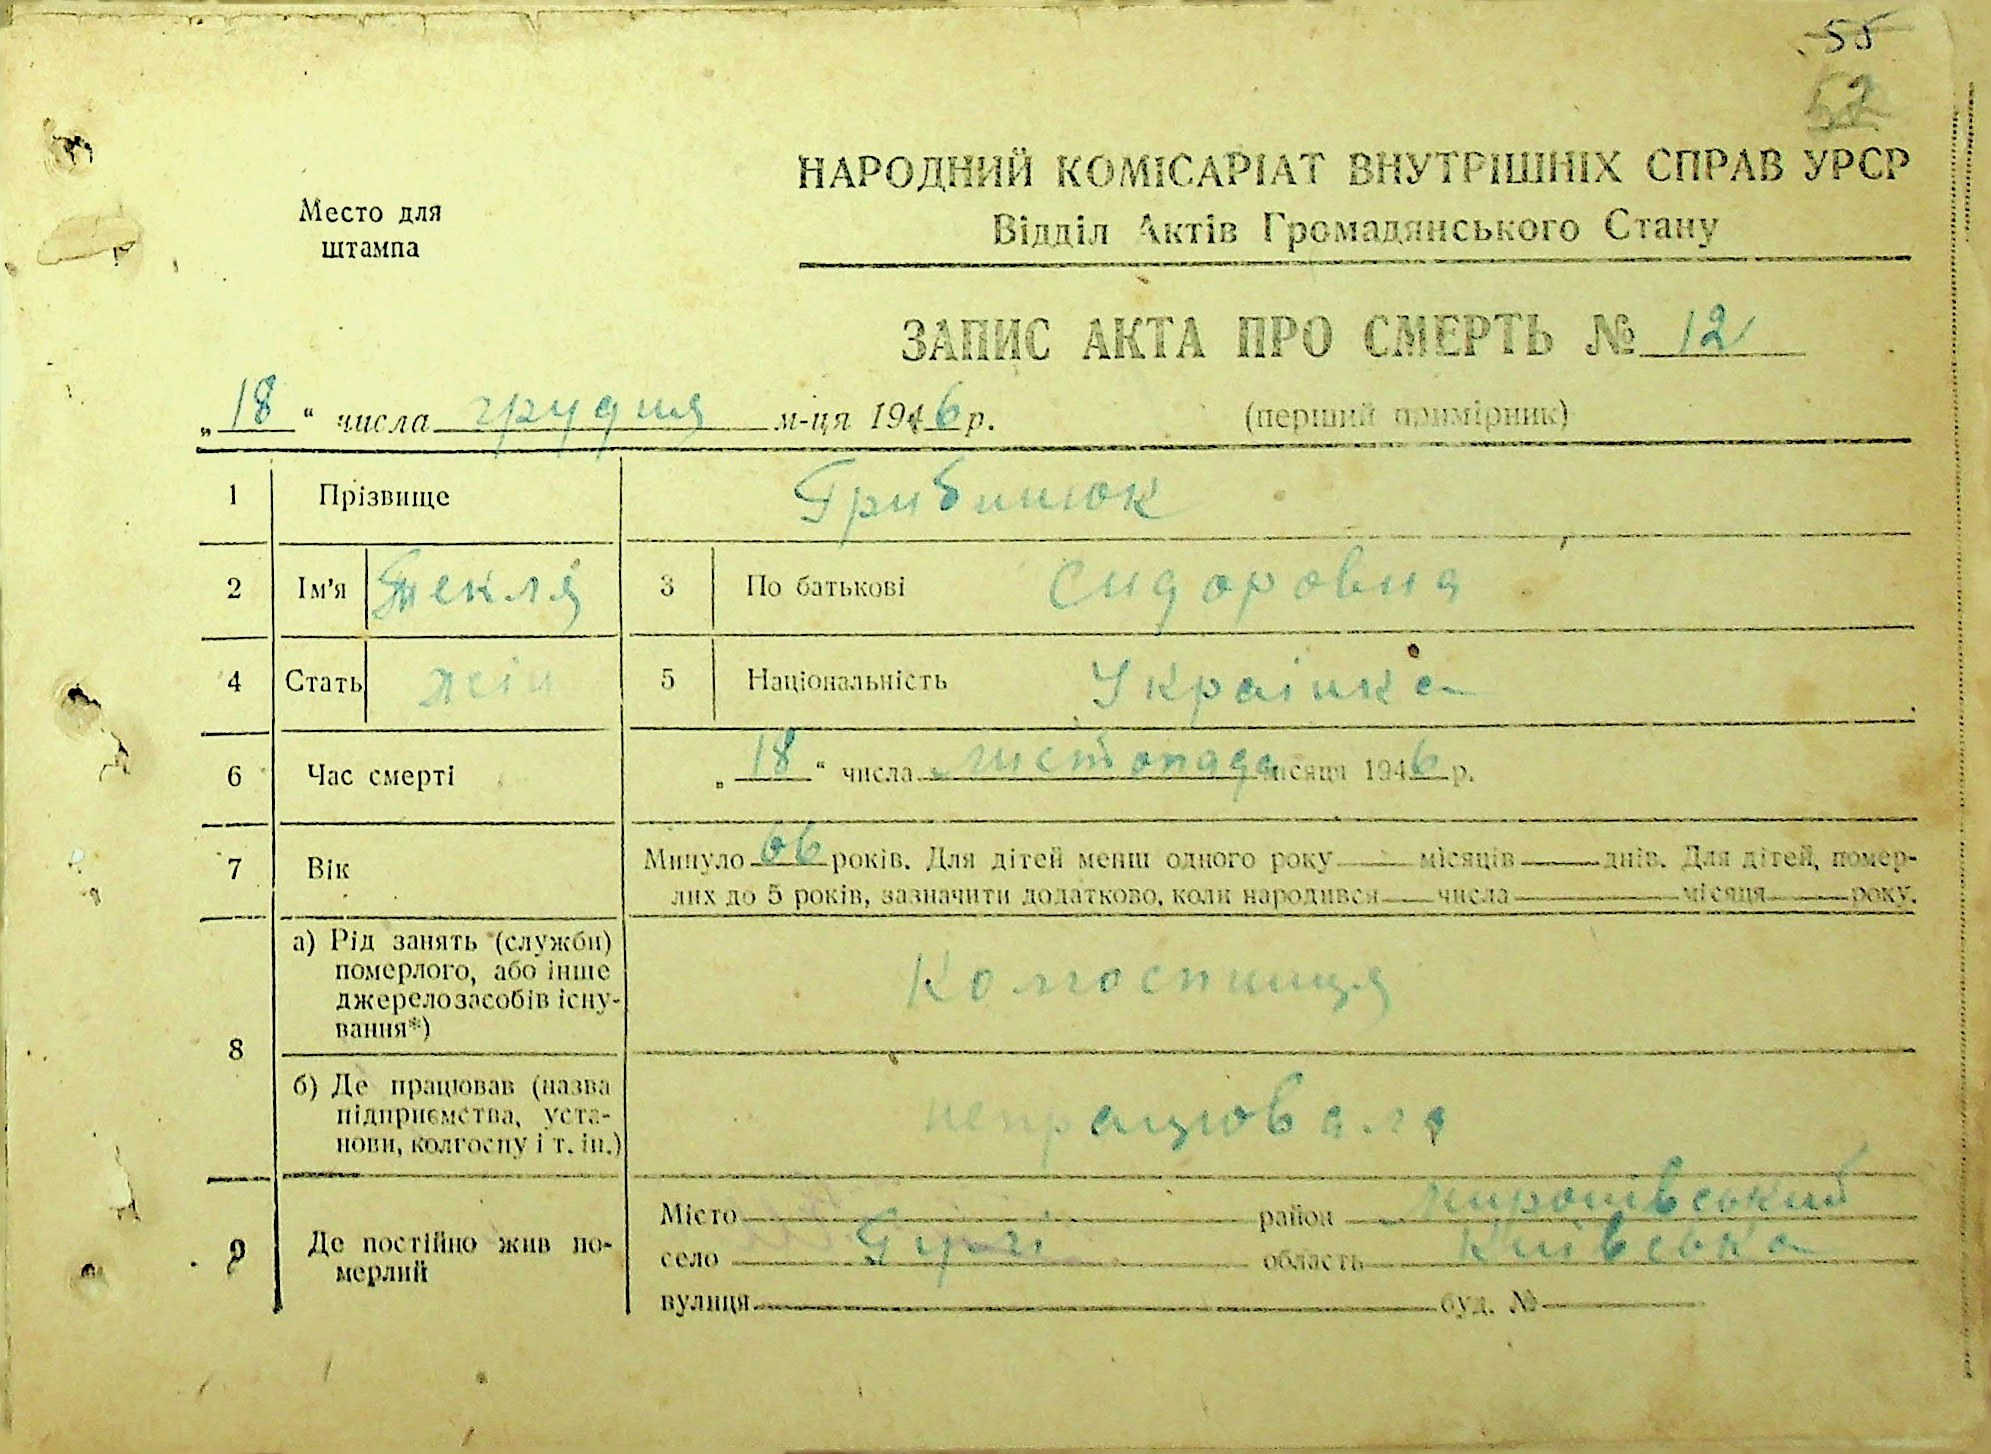 55
52
НАРОДНИЙ КОМІСАРІАТ ВНУТРІШНІХ СПРАВ УРСР
Место для штампа
Відділ Актів Громадянського Стану
ЗАПИС АКТА ПРО СМЕРТЬ № 12
„18“ числа грудня м-ця 1946 р. (перший примірник)
1 Прізвище Грибинюк
2 Ім'я Текля 3 По батькові Сидоровна
4 Стать жін 5 Національність Українка
6 Час смерті „18“ числа листопада місяця 1946 р.
7 Вік Минуло 66 років. Для дітей менш одного року місяців днів. Для дітей, помер-
лих до 5 років, зазначити додатково, коли народився числа місяця року.
8 а) Рід занять (служби)
померлого, або інше
джерело засобів існу-
вання*) Колгоспниця
б) Де працював (назва
підприємства, уста-
нови, колгоспу і т. ін.) непрацювала
9 Де постійно жив по-
мерлий
Місто район Миронівський
село область Київська
вулиця буд. №